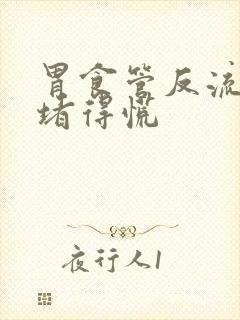 胃食管反流
堵得慌
夜行人1